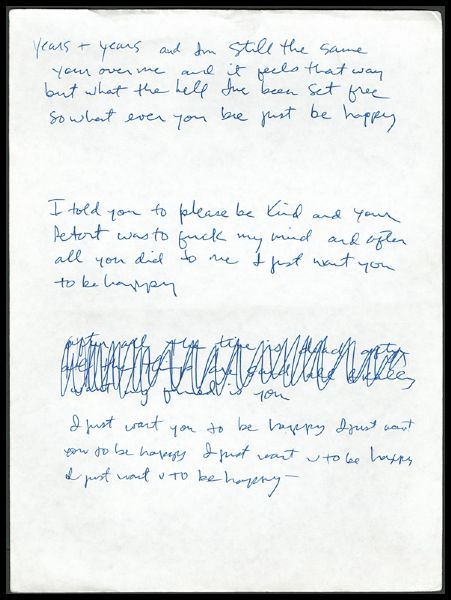 years + years and Im still the same
your over me and it feels that way
but what the hell Ive been set free
so what ever you be just be happy
I told you to please be kind and your
Retort was to fuck my mind and after
all you did to me I just want you
to be happy
is you
I just want you to be happy I just want
you to be happy I just want u to be happy
I just want u to be happy —